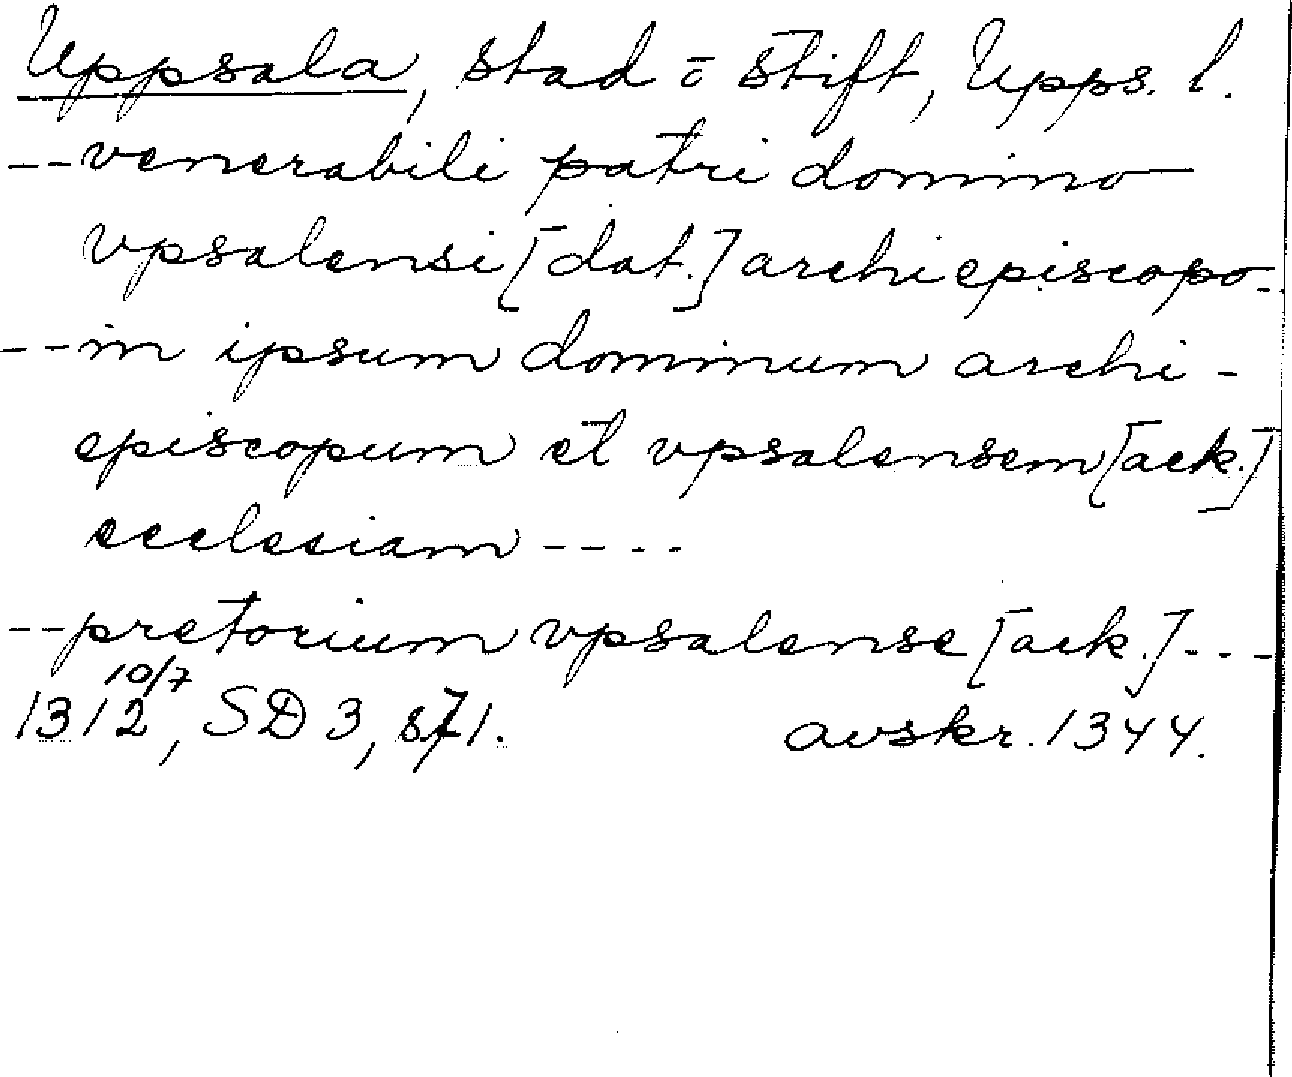 Uppsala, stad o stift, Upps. l.
--venerabili patri domino
vpsalensi [dat.] archiepiscopo--
--in ipsum dominum archi-
episcopum et vpsalensem [ack.]
ecclesiam ----
--pretorium vpsalense [ack.]---
1312 10/7, SD 3, s 71. avskr. 1344.